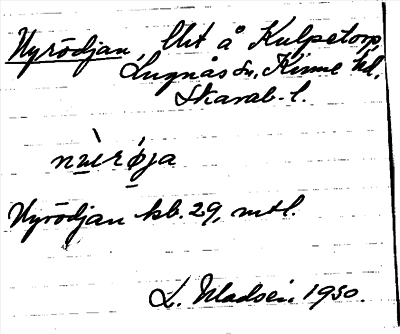 Nyrödjan, Utt å Kulpetorp,
Lugnås sn, Kinne hd,
Skarab. l.
nùɯrǿja
Nyrödjan kb. 29, mtl.
L. Madsén 1930.